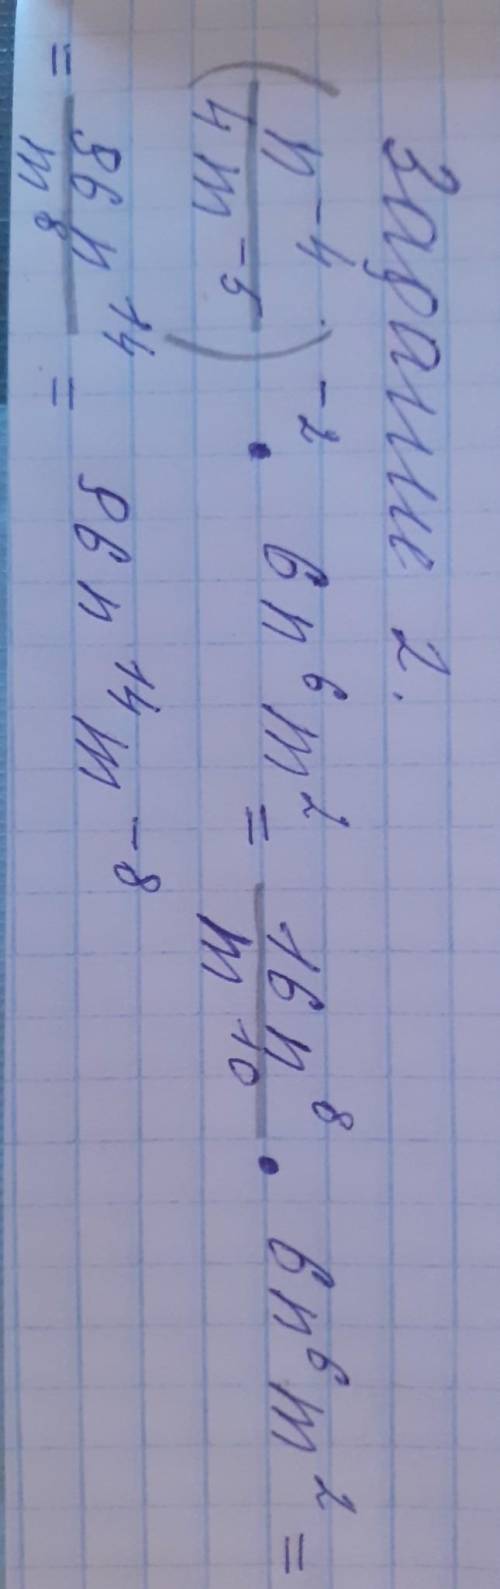 Задание 2.
(n^-4 / 4m^-5)^-2 · 6n^6m^2 = 16n^8 / m^10 · 6n^6m^2 =
= 96n^14 / m^8 = 96n^14m^-8